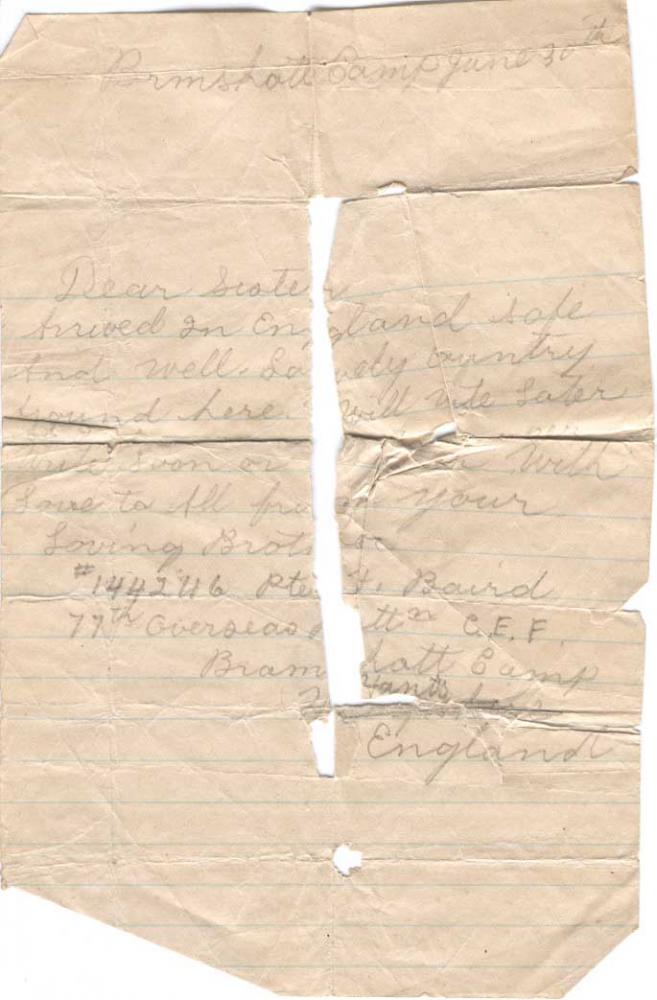 Brmshott Camp June 30th
Dear Sister
Arrived In England safe
And well. Lovely Country
round here. Will rite Later
write soon or with
Love to All from your
Loving Brother
#144246 Pte Baird
77th Overseas Battn C.E.F.
Bramshott Camp
Hants
England